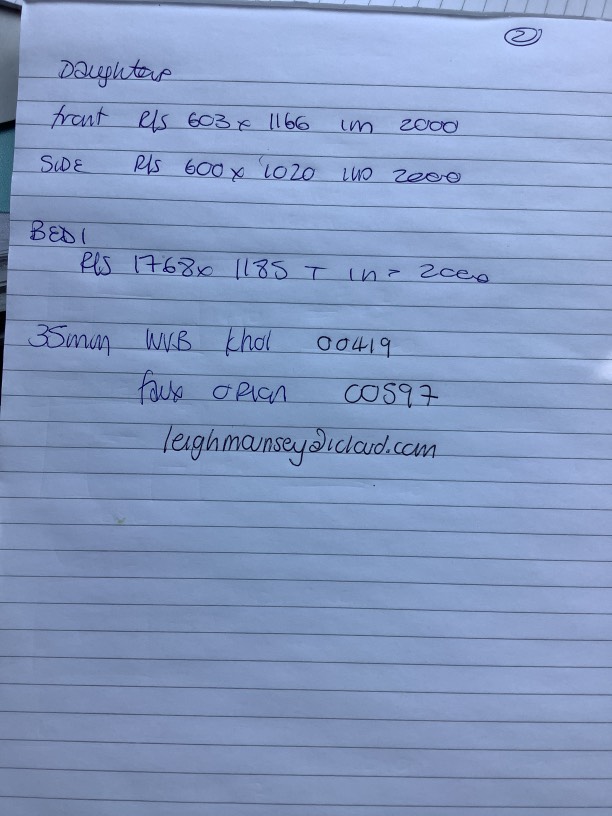 2
Daughters
front R/S 603 x 1166 in 2000
SIDE R/S 600 x 1020 in 2000
BED 1
R/S 1768 x 1185 in = 2000
35mm WVB khol 00419
faux orian 00597
leighmansey@icloud.com